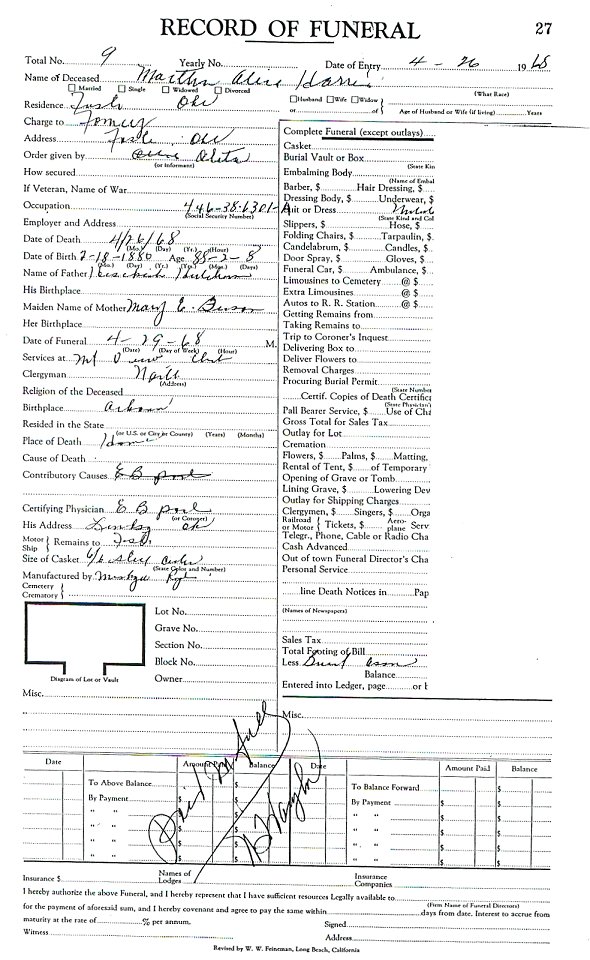 RECORD OF FUNERAL 27
Total No. 9 Yearly No. Date of Entry 4 - 26 19 68
Name of Deceased Martha Harris
Married Single Widowed Divorced (What Race)
Residence Okl Husband Wife Widow
or or Age of Husband or Wife (if living) Years
Charge to Family
Address Okl
Order given by
(or Informant)
How secured
If Veteran, Name of War
Occupation 446-38-6301-A
(Social Security Number)
Employer and Address
Date of Death 4/26/68
(Mo.) (Day) (Yr.) (Hour)
Date of Birth 2-18-1880 Age 88-2-8
(Mo.) (Day) (Yr.) (Yrs.) (Mos.) (Days)
Name of Father
His Birthplace
Maiden Name of Mother Mary E.
Her Birthplace
Date of Funeral 4-29-68 M.
(Date) (Day of Week) (Hour)
Services at Mt
Clergyman
(Address)
Religion of the Deceased
Birthplace
Resided in the State
(or U.S. or City or County) (Years) (Months)
Place of Death Home
Cause of Death
Contributory Causes E B
Certifying Physician E B
(or Coroner)
His Address Lindsay Ok
Motor Ship Remains to
Size of Casket 6/6
(State Color and Number)
Manufactured by
Cemetery
Crematory
Lot No.
Grave No.
Section No.
Block No.
Owner
Diagram of Lot or Vault
Misc.
Complete Funeral (except outlays)
Casket
Burial Vault or Box
(State Kin
Embalming Body
(Name of Embal
Barber, $ Hair Dressing, $
Dressing Body, $ Underwear, $
Suit or Dress
(State Kind and Col
Slippers, $ Hose, $
Folding Chairs, $ Tarpaulin, $
Candelabrum, $ Candles, $
Door Spray, $ Gloves, $
Funeral Car, $ Ambulance, $
Limousines to Cemetery @ $
Extra Limousines @ $
Autos to R. R. Station @ $
Getting Remains from
Taking Remains to
Trip to Coroner's Inquest
Delivering Box to
Deliver Flowers to
Removal Charges
Procuring Burial Permit
(State Number
Certif. Copies of Death Certific
(State Physician'
Pall Bearer Service, $ Use of Cha
Gross Total for Sales Tax
Outlay for Lot
Cremation
Flowers, $ Palms, $ Matting,
Rental of Tent, $ of Temporary
Opening of Grave or Tomb
Lining Grave, $ Lowering Dev
Outlay for Shipping Charges
Clergymen, $ Singers, $ Orga
Railroad or Motor Tickets, $ Aero-plane Serv
Telegr., Phone, Cable or Radio Cha
Cash Advanced
Out of town Funeral Director's Cha
Personal Service
line Death Notices in Pap
(Names of Newspapers)
Sales Tax
Total Footing of Bill
Less
Balance
Entered into Ledger, page or b
Misc.
Date Amount Paid Balance Date Amount Paid Balance
To Above Balance $ $ To Balance Forward $
By Payment $ $ By Payment $ $
" " $ $ " " $ $
" " $ $ " " $ $
" " $ $ " " $ $
" " $ $ " " $ $
Paid In full
Insurance $ Names of Lodges Insurance Companies
I hereby authorize the above Funeral, and I hereby represent that I have sufficient resources Legally available to
(Firm Name of Funeral Directors)
for the payment of aforesaid sum, and I hereby covenant and agree to pay the same within days from date. Interest to accrue from
maturity at the rate of % per annum. Signed
Witness Address
Revised by W. W. Feineman, Long Beach, California